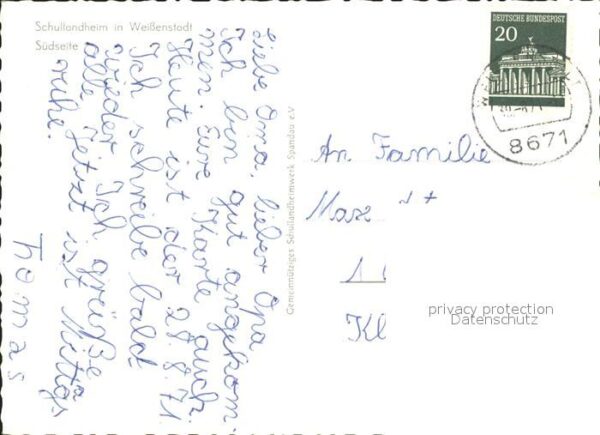 Schullandheim in Weißenstadt
Südseite
Liebe Oma, lieber Opa
Ich bin gut angekom-
men. Eure Karte auch.
Heute ist der 28.8.71.
Ich schreibe bald
wieder. Ich grüße
alle. Jetzt ist Mittags
ruhe.
Thomas
Gemeinnütziges Schullandheimwerk Spandau e.V
DEUTSCHE BUNDESPOST
20
8671
An Familie
Kl
privacy protection
Datenschutz